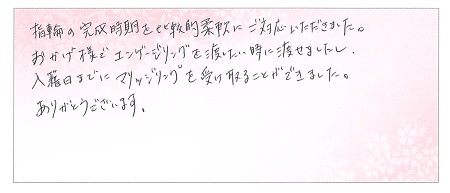 指輪の完成時期を比較的柔軟にご対応いただきました。
おかげ様でエンゲージリングを渡したい時に渡せましたし、
入籍日までにマリッジリングを受け取ることができました。
ありがとうございます。